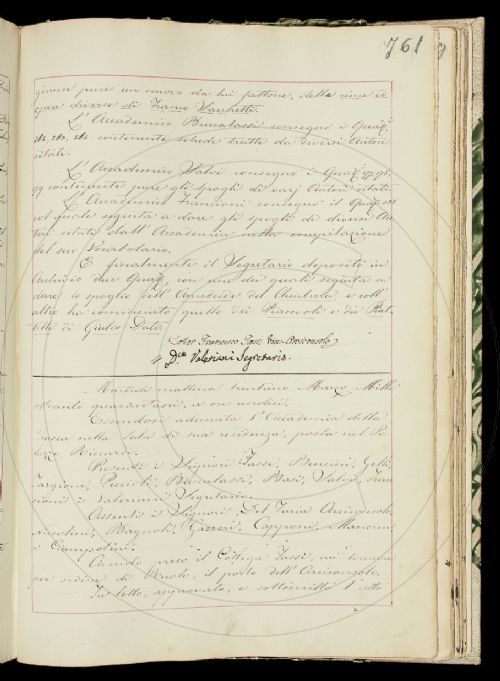 761
giunse pure un nuovo da lui fattone, delle rime et
opere diverse di Franco Sacchetti.
L'Accademico Brucalassi consegnò i Quad.
contenenti schede tratte da diversi Autori
citati.
L'Accademico Salvi consegnò i Quad.
99 contenente pure gli spogli di varj Autori citati.
L'Accademico Franceschi consegnò il Quad.
col quale seguita a dare gli spogli di diversi Au-
tori citati dall'Accademia nella compilazione
del suo Vocabolario.
E finalmente il Segretario depositò in
due Quad. con uno dei quali seguita a
dare lo spoglio dell' del e coll'
altro ha cominciato quello dei Piacevoli e dei Piat-
telli di Giulio Dati.
Dottor Francesco Tassi Vice-Arciconsolo
D.co Valeriani Segretario.
Martedì mattina trentuno Marzo Mille
ottocento quarantasei, a ore undici.
Essendosi adunata l'Accademia della
Crusca nella Sala di sua residenza, posta nel Pa-
lazzo Riccardi.
Presenti i Signori Tassi, Bencini, Gelli,
Targioni, Puccioti, Brucalassi, Basi, Salvi, Fran-
cioni e Valeriani Segretario.
Assenti i Signori Del Furia Arciconsolo
Niccolini, Bagnoli, Gazzeri, Capponi, Mancini,
e Ciampolini.
Avendo preso il Collega Tassi, in
per ordine di Ruolo, il posto dell'Arciconsolo,
Fu letto, approvato, e sottoscritto l'atto